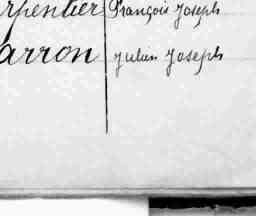 rpentier François Joseph
arron Julien Joseph